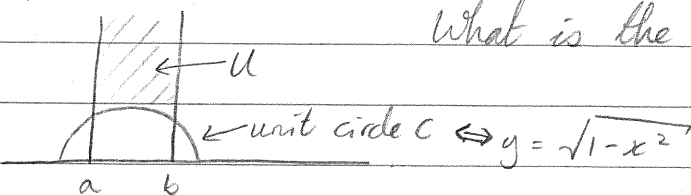 What is the
U
unit circle C ⇔ y = √1-x²
a b